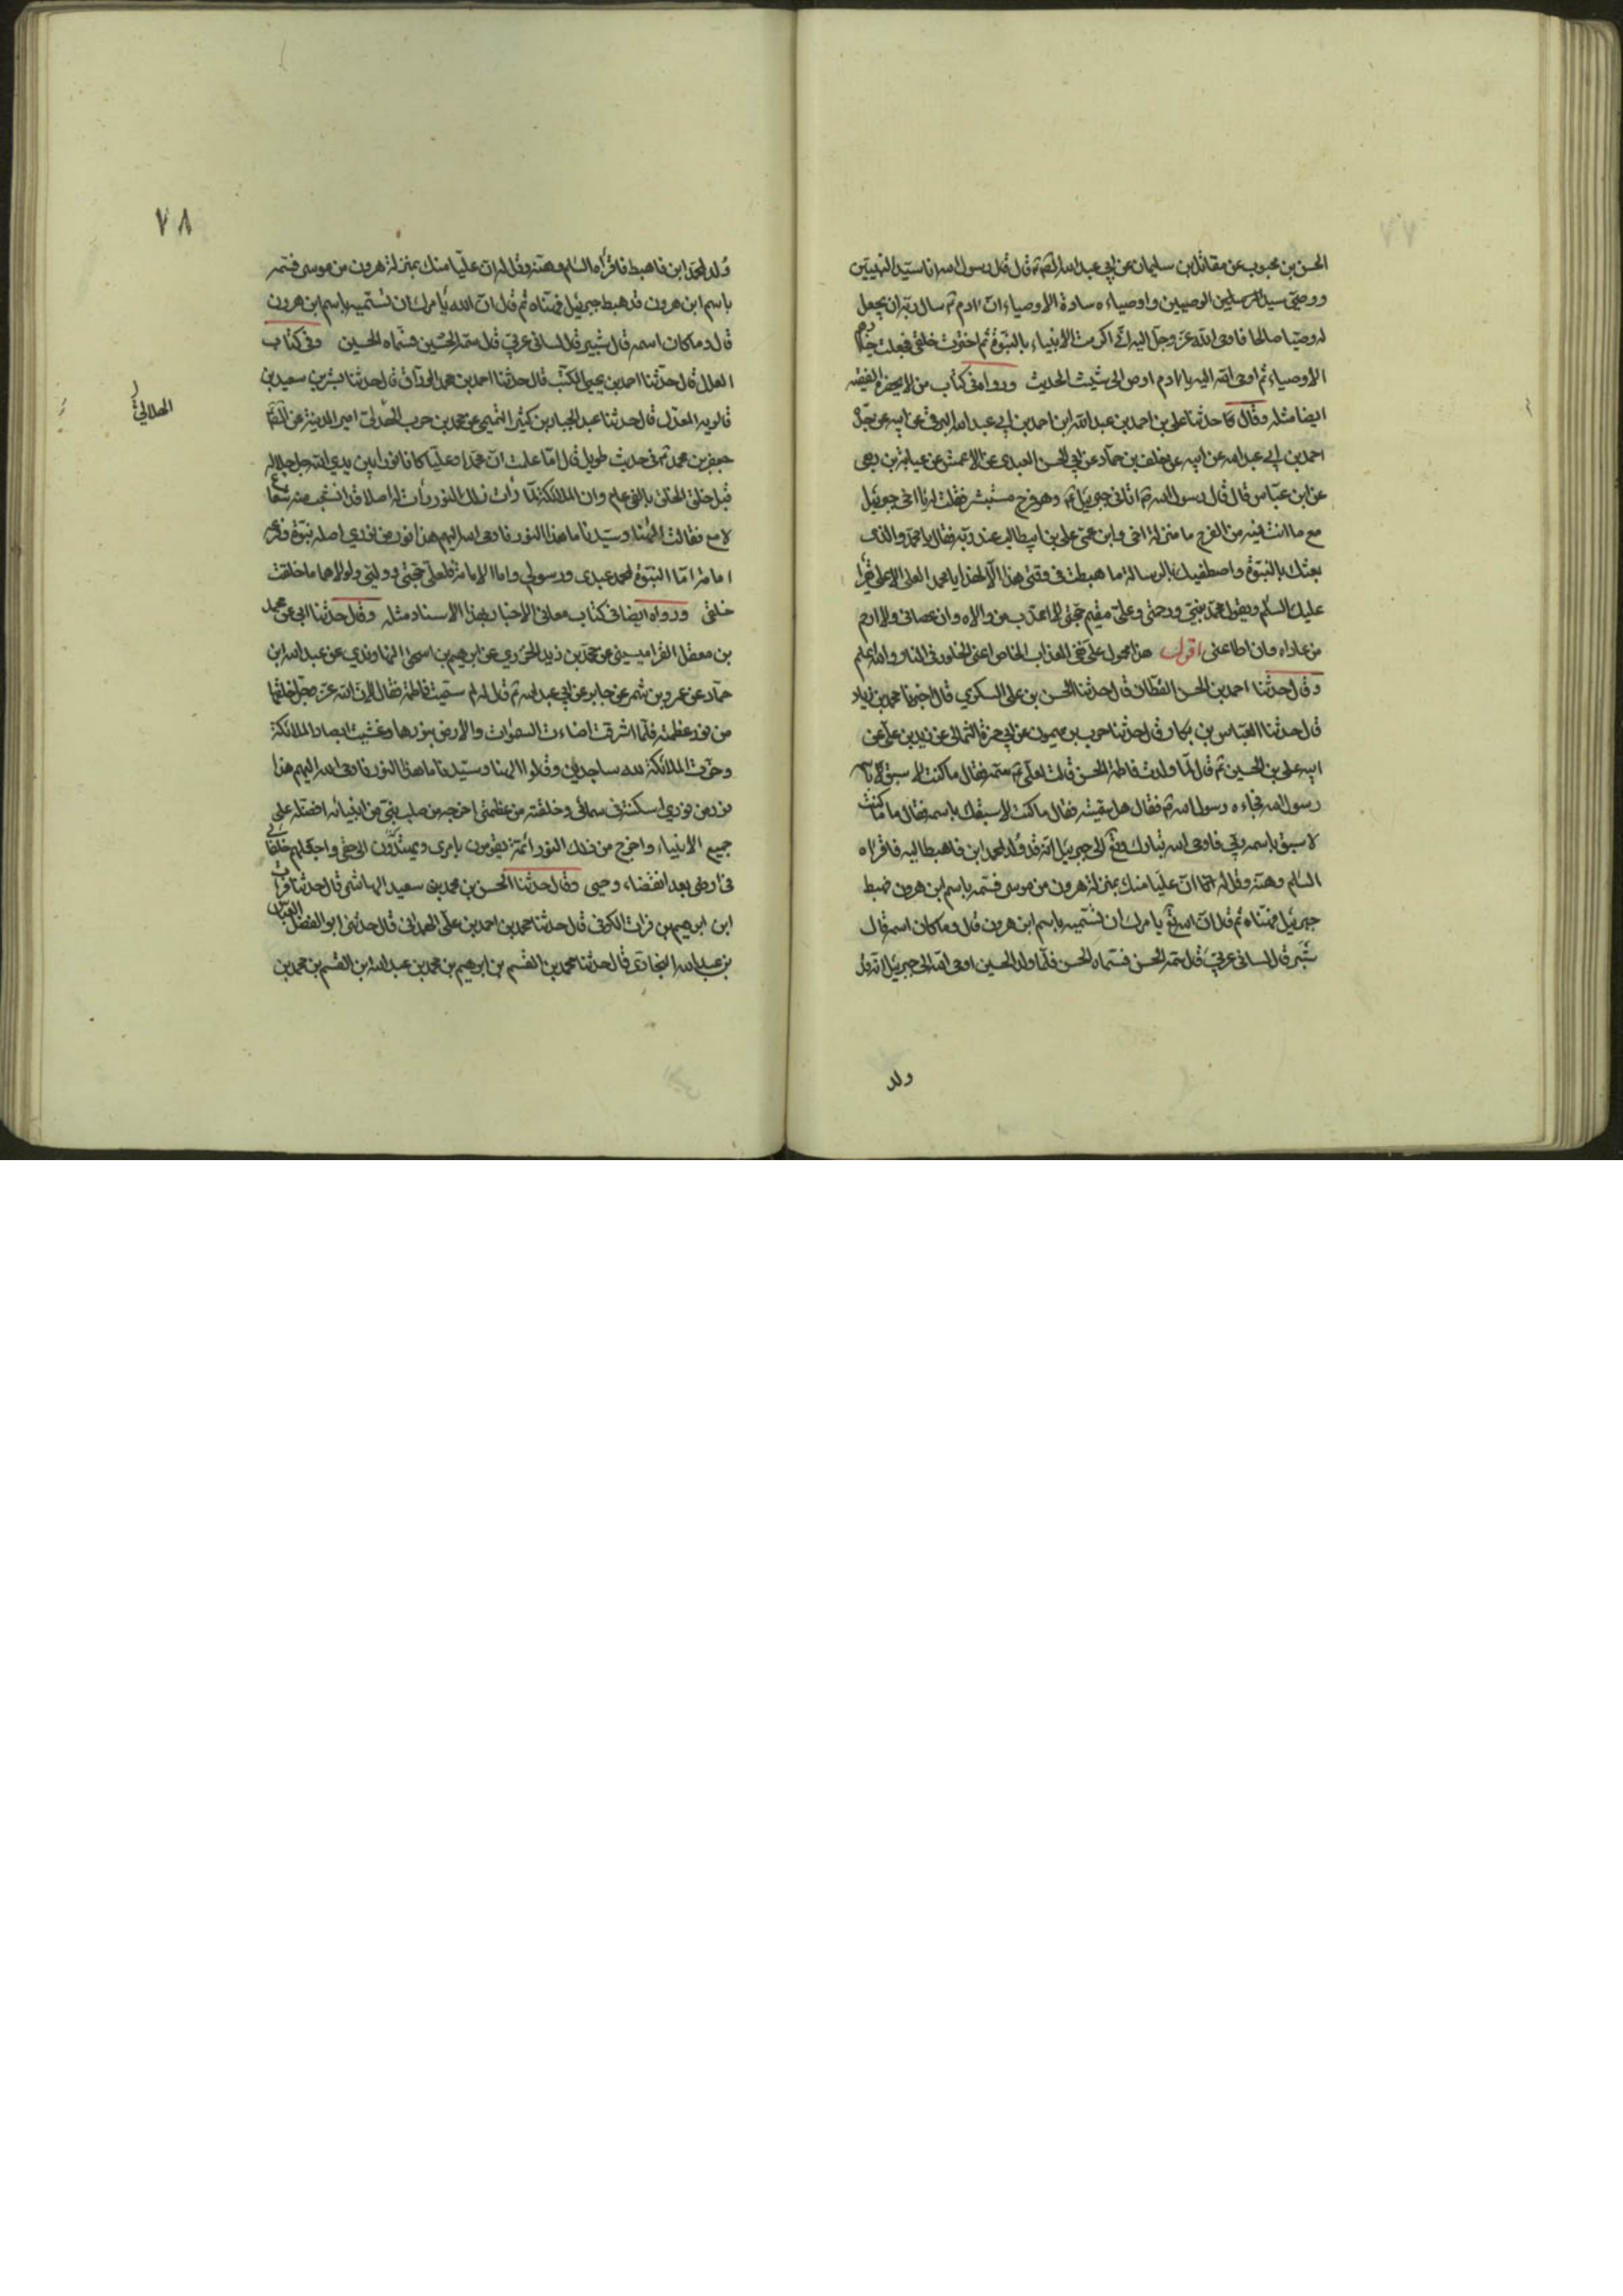 الحسن بن محبوب عن مقاتل بن سليمان عن ابي عبد الله قال قال رسول الله انا سيد النبيين
ووصيي سيد الوصيين واوصياءه سادة الاوصياء ان ادم سال ربه ان يجعل
له وصيا صالحا فاوحى الله عز وجل اليه اني اكرمت الانبياء بالنبوة ثم اخترت خلقي فجعلت خيارهم
الاوصياء ثم اوحى الله اليه يا ادم اوص الى شيث الحديث ورواه في كتاب من لا يحضره الفقيه
ايضا مثله وقال حدثنا علي بن احمد بن عبد الله ابن احمد بن ابي عبد الله البرقي عن ابيه عن جده
احمد بن ابي عبد الله عن ابيه عن خلف بن حماد عن ابي الحسن العبدي عن الاعمش عن عباية بن ربعي
عن ابن عباس قال قال رسول الله اتاني جبرئيل وهو فرح مستبشر فقلت له يا اخي جبرئيل
مع ما انت فيه من الفرح ما منزلة اخي وابن عمي علي بن ابيطالب عند ربه فقال يا محمد والذي
بعثك بالنبوة واصطفيك بالرسالة ما هبطت في وقتي هذا الا لهذا يا محمد العلي الاعلى يقرأ
عليك السلم ويقول محمد نبيي ورحمتي وعلي مقيم حجتي لا اعذب من والاه وان عصاني ولا ارحم
من عاداه وان اطاعني اقول هذا محمول على نفي العذاب الخاص اعني الخلود في النار والله اعلم
وقال حدثنا احمد بن الحسن القطان قال حدثنا الحسن بن علي السكري قال اخبرنا محمد بن زياد
قال حدثنا العباس بن بكار قال حدثنا حرب بن ميمون عن ابي حمزة الثمالي عن زيد بن علي عن
ابيه علي بن الحسين قال لما ولدت فاطمة الحسن قالت لعلي سمه فقال ما كنت لاسبق باسمه
رسول الله فجاءه رسول الله فقال هل سميته فقال ما كنت لاسبقك باسمه فقال ما كنت
لاسبق باسمه ربي فاوحى الله تبارك وتع الى جبرئيل انه قد ولد لمحمد ابن فاهبط اليه فاقراه
السلم وهنه وقل له ان عليا منك بمنزلة هرون من موسى فسمه باسم ابن هرون فهبط
جبرئيل فهناه ثم قال ان الله تع يامرك ان تسميه باسم ابن هرون قال وما كان اسمه قال
شبر قال لساني عربي قال سمه الحسن فسماه الحسن فلما ولد الحسين اوحى الله الى جبرئيل انه قد
ولد
٧٨
ولد لمحمد ابن فاهبط فاقرأه السلم وهنه وقل له ان عليا منك بمنزلة هرون من موسى فسمه
باسم ابن هرون قد هبط جبرئيل فهناه ثم قال ان الله يامرك ان تسميه باسم ابن هرون
قال وما كان اسمه قال شبير قال لساني عربي قال سمه الحسين فسماه الحسين وفي كتاب
العلل قال حدثنا احمد بن يحيى المكتب قال حدثنا احمد بن محمد الوراق قال حدثنا بشر بن سعيد بن
قالويه المعدل قال حدثنا عبد الجبار بن كثير التميمي عن محمد بن حرب الهلالي امير المدينة عن
الهلالي
جعفر بن محمد في حديث طويل قال اما علمت ان محمدا وعليا كانا نورا بين يدي الله جل جلاله
قبل خلق الخلق بالفي عام وان الملائكة لما رات ذلك النور رأت له اصلا قد انشعب منه شعاع
لامع فقالت الهنا وسيدنا ما هذا النور فاوحى الله اليهم هذا نور من نوري اصله نبوة وفرعه
امامة اما النبوة لمحمد عبدي ورسولي واما الامامة لعلي حجتي ووليي ولولاهما ما خلقت
خلقي ورواه ايضا في كتاب معاني الاخبار بهذا الاسناد مثله وقال حدثنا ابي عن محمد
بن معقل القرميسيني عن محمد بن زيد الجزري عن ابرهيم بن اسحق النهاوندي عن عبد الله ابن
حماد عن عمرو بن شمر عن جابر عن ابي عبد الله قال قلت له لم سميت فاطمة فقال لان الله عز وجل خلقها
من نور عظمته فلما اشرقت اضاءت السموات والارض بنورها وغشيت ابصار الملائكة
وخرت الملائكة لله ساجدين وقالوا الهنا وسيدنا ما هذا النور فاوحى الله اليهم هذا
نور من نوري اسكنته في سمائي وخلقته من عظمتي اخرجه من صلب نبي من انبيائي افضله على
جميع الانبياء واخرج من ذلك النور ائمة يقومون بامري ويهتدون الى حقي واجعلهم خلفائي
في ارضي بعد انقضاء وحيي وقال حدثنا الحسن بن محمد بن سعيد الهاشمي قال حدثنا فرات
ابن ابرهيم بن فرات الكوفي قال حدثنا محمد بن احمد بن علي الهمداني قال حدثني ابو الفضل العباس
بن عبد الله البخاري قال حدثنا محمد بن القسم بن ابرهيم بن محمد بن عبد الله ابن القسم بن محمد بن